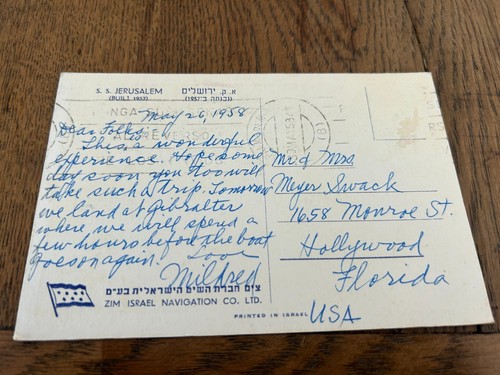 S. S. JERUSALEM
(BUILT 1957)
א.ק. ירושלים
(נבנתה ב־1957)
May 26, 1958
Dear Folks:
This is a wonderful
experience. Hope some
day soon you too will
take such a trip. Tomorrow
we land at Gibralter
where, we will spend a
few hours before the boat
goes on again.
Love
Mildred
Mr. & Mrs.
Meyer Swack
1658 Monroe St.
Hollywood
Florida
USA
צים חברת השיט הישראלית בע"מ
ZIM ISRAEL NAVIGATION CO. LTD.
PRINTED IN ISRAEL